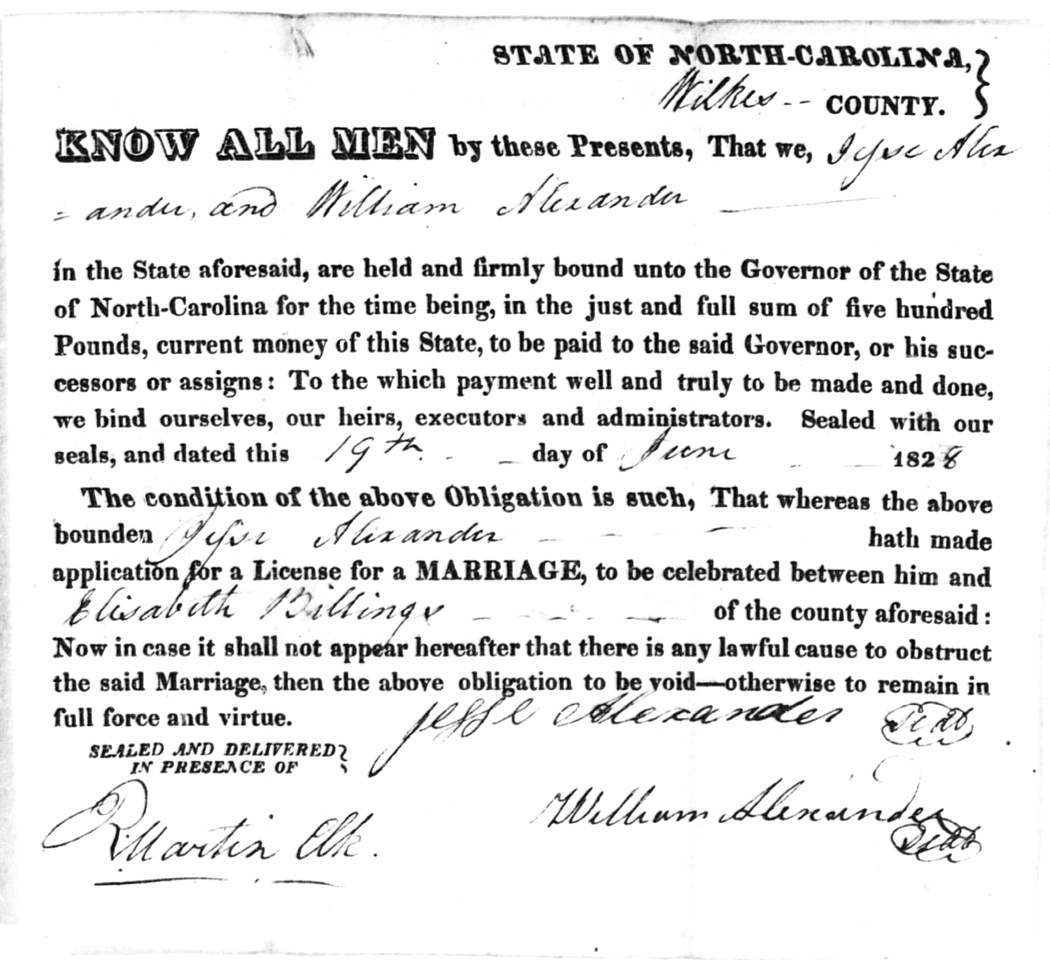 STATE OF NORTH-CAROLINA,
Wilkes -- COUNTY.
KNOW ALL MEN by these Presents, That we, Jesse Alex
= ander, and William Alexander
in the State aforesaid, are held and firmly bound unto the Governor of the State
of North-Carolina for the time being, in the just and full sum of five hundred
Pounds, current money of this State, to be paid to the said Governor, or his suc-
cessors or assigns: To the which payment well and truly to be made and done,
we bind ourselves, our heirs, executors and administrators. Sealed with our
seals, and dated this 19th day of June 1828
The condition of the above Obligation is such, That whereas the above
bounden Jesse Alexander hath made
application for a License for a MARRIAGE, to be celebrated between him and
Elisabeth Billings of the county aforesaid:
Now in case it shall not appear hereafter that there is any lawful cause to obstruct
the said Marriage, then the above obligation to be void—otherwise to remain in
full force and virtue. Jesse Alexander Seal
SEALED AND DELIVERED
IN PRESENCE OF
William Alexander Seal
R. Martin Clk.